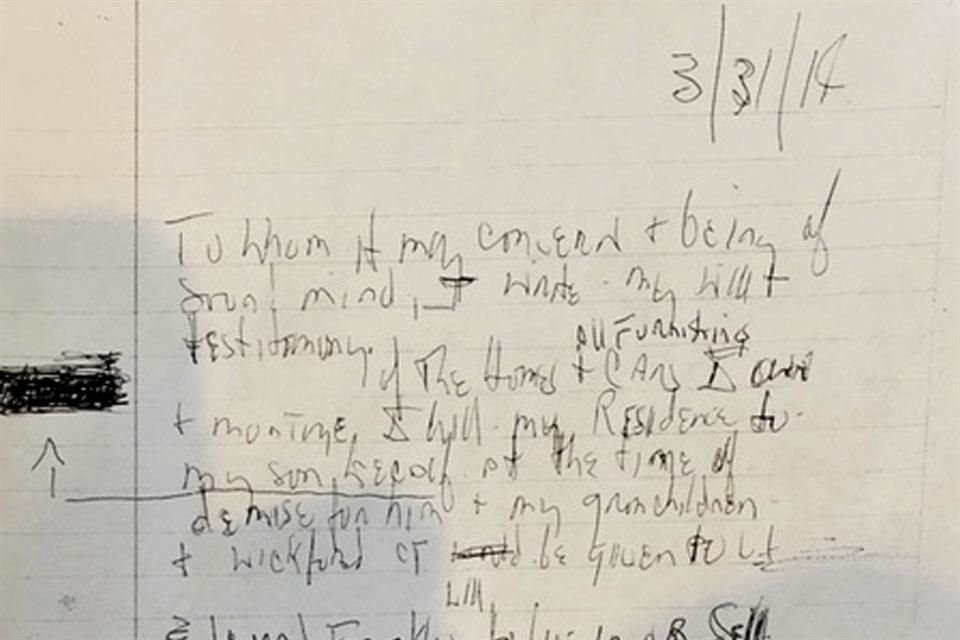 3/31/14
To whom it may concern + being of
sound mind, I write my will +
testimony.
all Furnishing
of The Homes + CARs I own
+ mortgage, I will my Residence to
my son Kecalf at the time of
demise for him + my granchildren
+ wickford CT be given to
will
or Sell